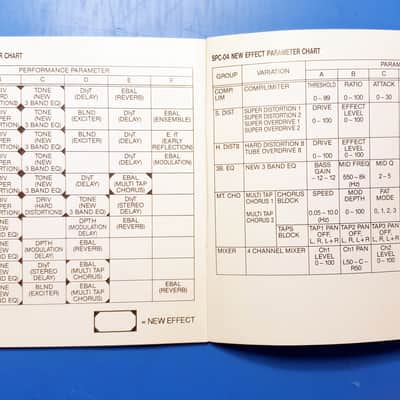 R CHART
PERFORMANCE PARAMETER
C D E F
TONE (NEW 3 BAND EQ) DlyT (DELAY) EBAL (REVERB)
TONE (NEW 3 BAND EQ) BLND (EXCITER) DlyT (DELAY) EBAL (ENSEMBLE)
TONE (NEW 3 BAND EQ) BLND (EXCITER) DlyT (DELAY) E. lT (EARLY REFLECTION)
TONE (NEW 3 BAND EQ) BLND (EXCITER) DlyT (DELAY) EBAL (MODULATION)
TONE (NEW 3 BAND EQ) DlyT (DELAY) EBAL (MULTI TAP CHORUS)
DRIV (HARD DISTORTION) TONE (NEW 3 BAND EQ) DlyT (STEREO DELAY)
DPTH (MODULATION DELAY) EBAL (REVERB)
DlyT (STEREO DELAY) EBAL (MULTI TAP CHORUS)
BLND (EXCITER) EBAL (MULTI TAP CHORUS) EBAL (REVERB)
= NEW EFFECT
SPC-04 NEW EFFECT PARAMETER CHART
GROUP VARIATION A B C
COMP/LIM COMP/LIMITER THRESHOLD 0~99 RATIO 0~100 ATTACK 0~30
S. DIST SUPER DISTORTION 1
SUPER DISTORTION 2
SUPER OVERDRIVE 1
SUPER OVERDRIVE 2
DRIVE 0~100 EFFECT LEVEL 0~100
H. DIST8 HARD DISTORTION 8
TURBO OVERDRIVE 8
DRIVE 0~100 EFFECT LEVEL 0~100
3B. EQ NEW 3 BAND EQ BASS GAIN −12~12 MID FREQ 550~8k (Hz) MID Q 2~5
MT CHO MULTI TAP CHORUS 1
MULTI TAP CHORUS 2
CHORUS BLOCK SPEED 0.05~10.0 (Hz) MOD DEPTH 0~100 PAT MODE 0, 1, 2, 3
TAPS BLOCK TAP1 PAN OFF, L, R, L+R TAP2 PAN OFF, L, R, L+R TAP3 PAN OFF, L, R, L+R
MIXER 4 CHANNEL MIXER Ch1 LEVEL 0~100 Ch1 PAN L50~C~R50 Ch2 LEVEL 0~100